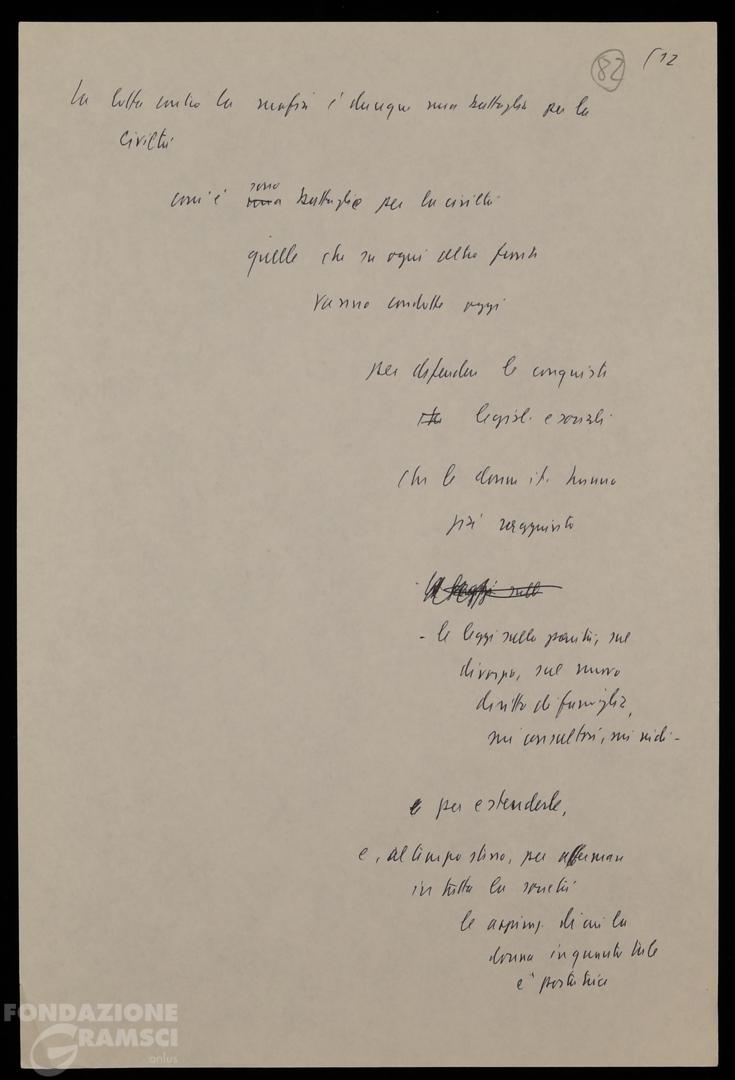 82 [12
La lotta contro la mafia è dunque una battaglia per la
civiltà
com'è sono
una battaglie per la civiltà
quelle che su ogni altro fronte
vanno condotte oggi
per difendere le conquiste
legisl. e sociali
che le donne it. hanno
già raggiunto
le leggi sulle
- le leggi sulla parità, sul
divorzio, sul nuovo
diritto di famiglia,
sui consultori, sui nidi -
e per estenderle,
e, al tempo stesso, per affermare
in tutta la società
le aspiraz. di cui la
donna in quanto tale
è portatrice
FONDAZIONE
GRAMSCI
onlus